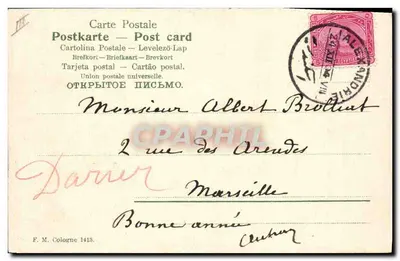 Carte Postale
Postkarte — Post card
Cartolina Postale — Levelező-Lap
Brefkort — Briefkaart — Brevkort
Tarjeta postal — Cartão postal.
Union postale universelle.
ОТКРЫТОЕ ПИСЬМО.
ALEXANDRIE
24 XII
Monsieur Albert
2 rue des
Darier
Marseille
Bonne année
F. M. Cologne 1413.
CPAPHIL